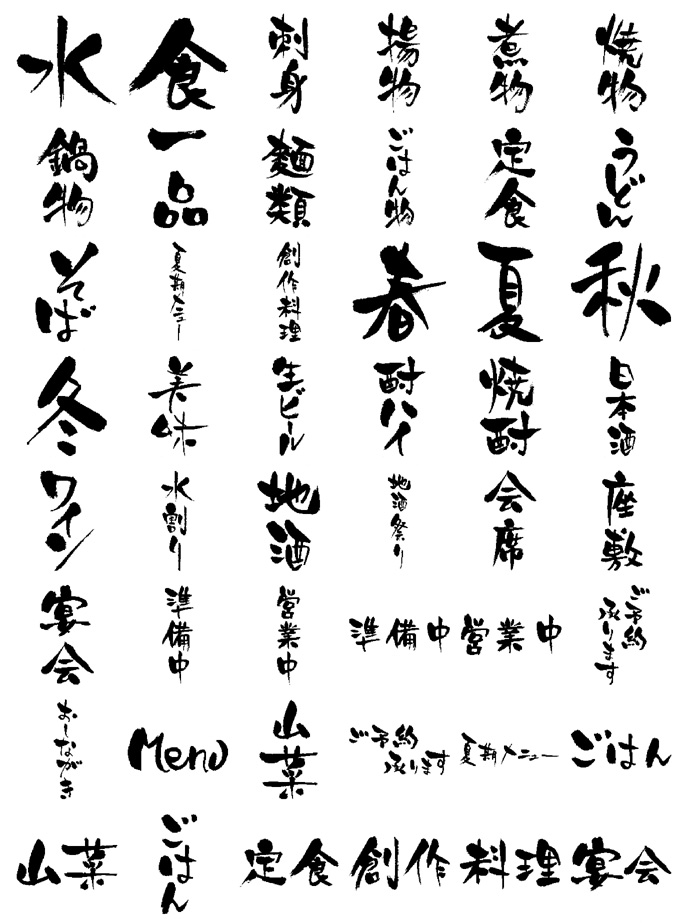 水
食
刺身
揚物
煮物
焼物
鍋物
一品
麺類
ごはん物
定食
うどん
そば
夏期メニュー
創作料理
春
夏
秋
冬
美味
生ビール
酎ハイ
焼酎
日本酒
ワイン
水割り
地酒
地酒祭り
会席
座敷
宴会
準備中
営業中
準備中
営業中
ご予約
承ります
おしながき
Menu
山菜
ご予約
承ります
夏期メニュー
ごはん
山菜
ごはん
定食
創作料理
宴会